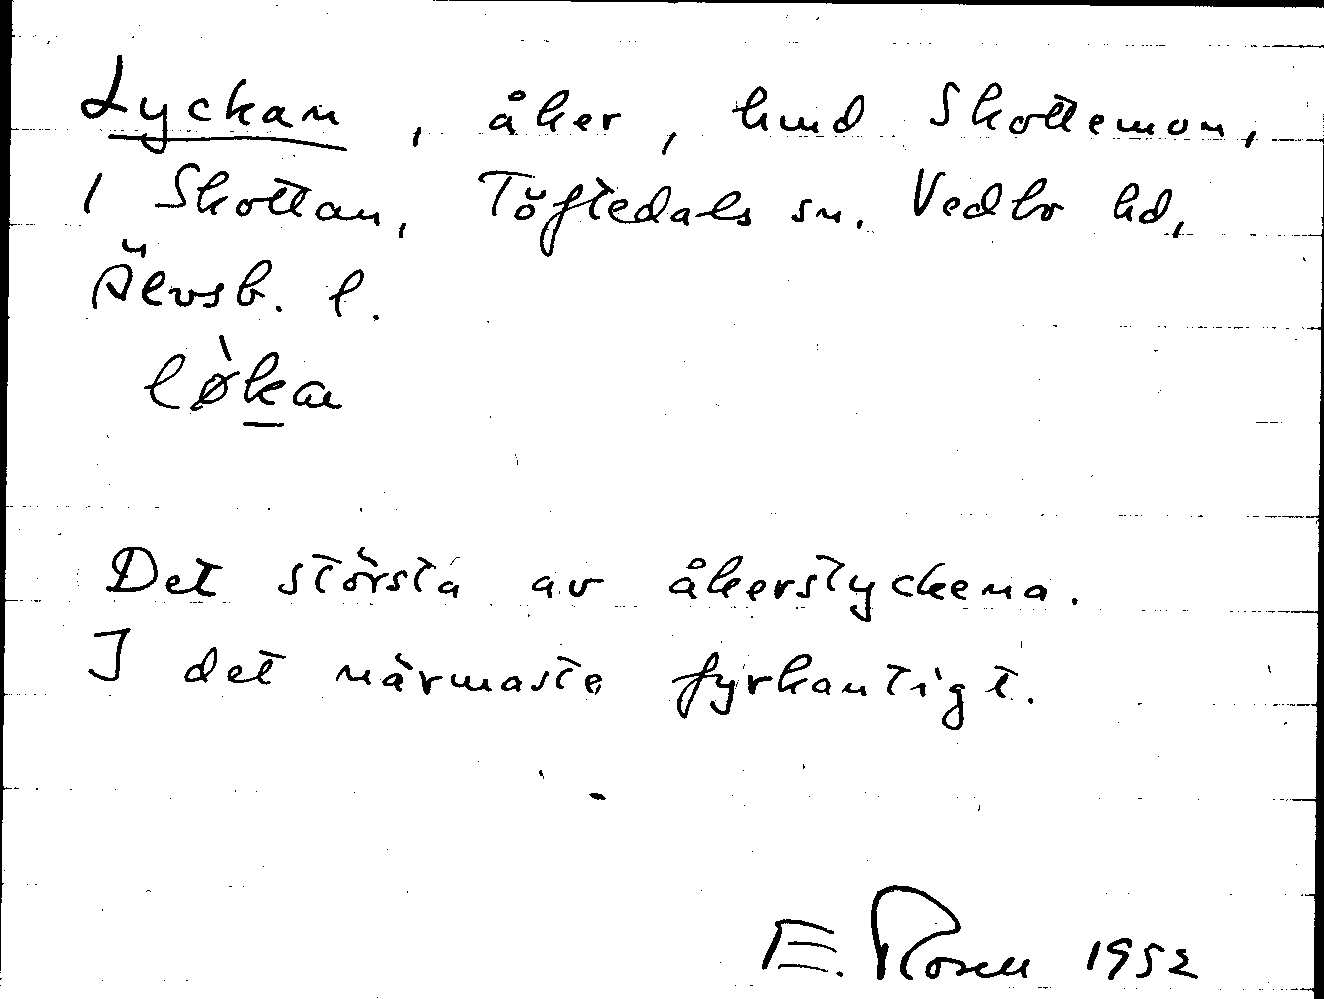 Lyckan, åker, hmd Skottemon,
i Skottan, Töftedals sn. Vedbo hd,
Älvsb. l.
lø̀kan
Det största av åkerstyckena.
I det närmaste fyrkantigt.
E. Rosell 1952